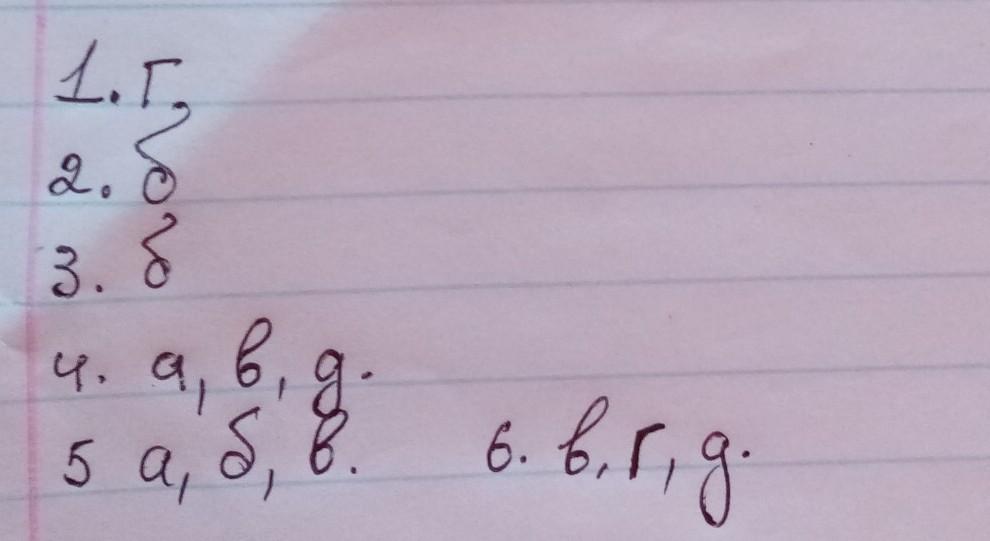 1. г.
2. б
3. б
4. а, в, д.
5 а, б, в. 6. в, г, д.